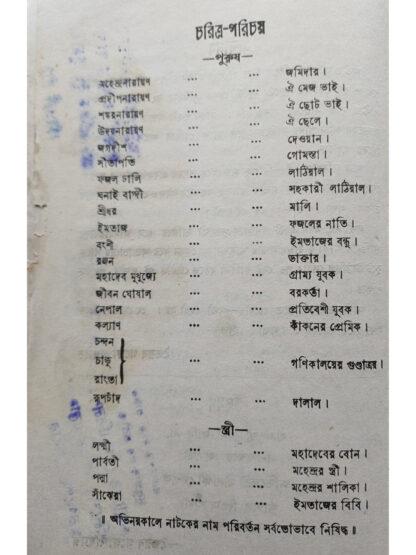 চরিত্র-পরিচয়
—পুরুষ—
মহেন্দ্রনারায়ণ ... ... জমিদার।
প্রদীপনারায়ণ ... ... ঐ মেজ ভাই।
শঙ্করনারায়ণ ... ... ঐ ছোট ভাই।
উদয়নারায়ণ ... ... ঐ ছেলে।
জগদীশ ... ... দেওয়ান।
সীতাপতি ... ... গোমস্তা।
ফজল ঢালি ... ... লাঠিয়াল।
ঘনাই বাগ্দী ... ... সহকারী লাঠিয়াল।
শ্রীধর ... ... মালি।
ইমতাজ ... ... ফজলের নাতি।
বংশী ... ... ইমতাজের বন্ধু।
রঞ্জন ... ... ডাক্তার।
মহাদেব মুখুজ্যে ... ... গ্রাম্য যুবক।
জীবন ঘোষাল ... ... বরকর্তা।
নেপাল ... ... প্রতিবেশী যুবক।
কল্যাণ ... ... কাঁকনের প্রেমিক।
চন্দন
চাকু ... ... গণিকালয়ের গুণ্ডাত্রয়।
রাংতা
রূপচাঁদ ... ... দালাল।
—স্ত্রী—
লক্ষ্মী ... ... মহাদেবের বোন।
পার্বতী ... ... মহেন্দ্রর স্ত্রী।
পদ্মা ... ... মহেন্দ্রর শালিকা।
সাঁঝেরা ... ... ইমতাজের বিবি।
॥ অভিনয়কালে নাটকের নাম পরিবর্তন সর্বতোভাবে নিষিদ্ধ ॥